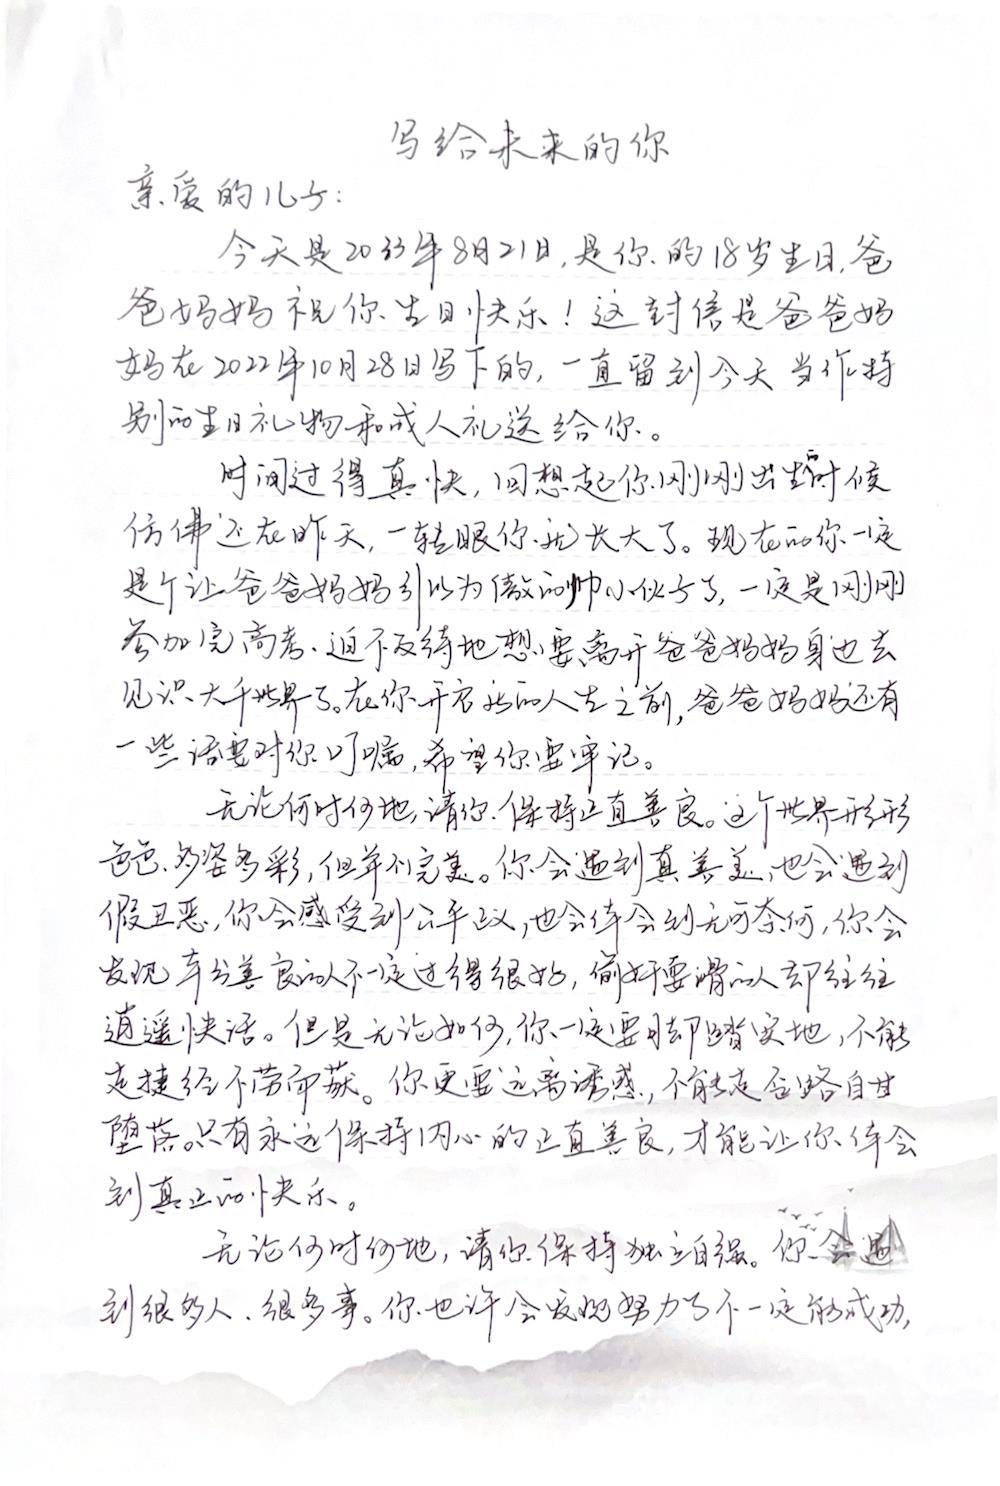 写给未来的你
亲爱的儿子:
今天是2033年8月21日,是你的18岁生日,爸
爸妈妈祝你生日快乐!这封信是爸爸妈
妈在2022年10月28日写下的,一直留到今天当作特
别的生日礼物和成人礼送给你。
时间过得真快,回想起你刚刚出生的时候
仿佛还在昨天,一转眼你就长大了。现在的你一定
是个让爸爸妈妈引以为傲的帅小伙子了,一定是刚刚
参加完高考、迫不及待地想要离开爸爸妈妈身边去
见识大千世界了。在你开启新的人生之前,爸爸妈妈还有
一些话要对你叮嘱,希望你要牢记。
无论何时何地,请你保持正直善良。这个世界形形
色色、多姿多彩,但并不完美。你会遇到真善美,也会遇到
假丑恶,你会感受到公平正义,也会体会到无可奈何,你会
发现本分善良的人不一定过得很好,偷奸耍滑的人却往往
逍遥快活。但是无论如何,你一定要脚踏实地,不能
走捷径不劳而获。你更要远离诱惑,不能走歪路自甘
堕落。只有永远保持内心的正直善良,才能让你体会
到真正的快乐。
无论何时何地,请你保持独立自强。你会遇
到很多人、很多事。你也许会发现努力了不一定能成功,